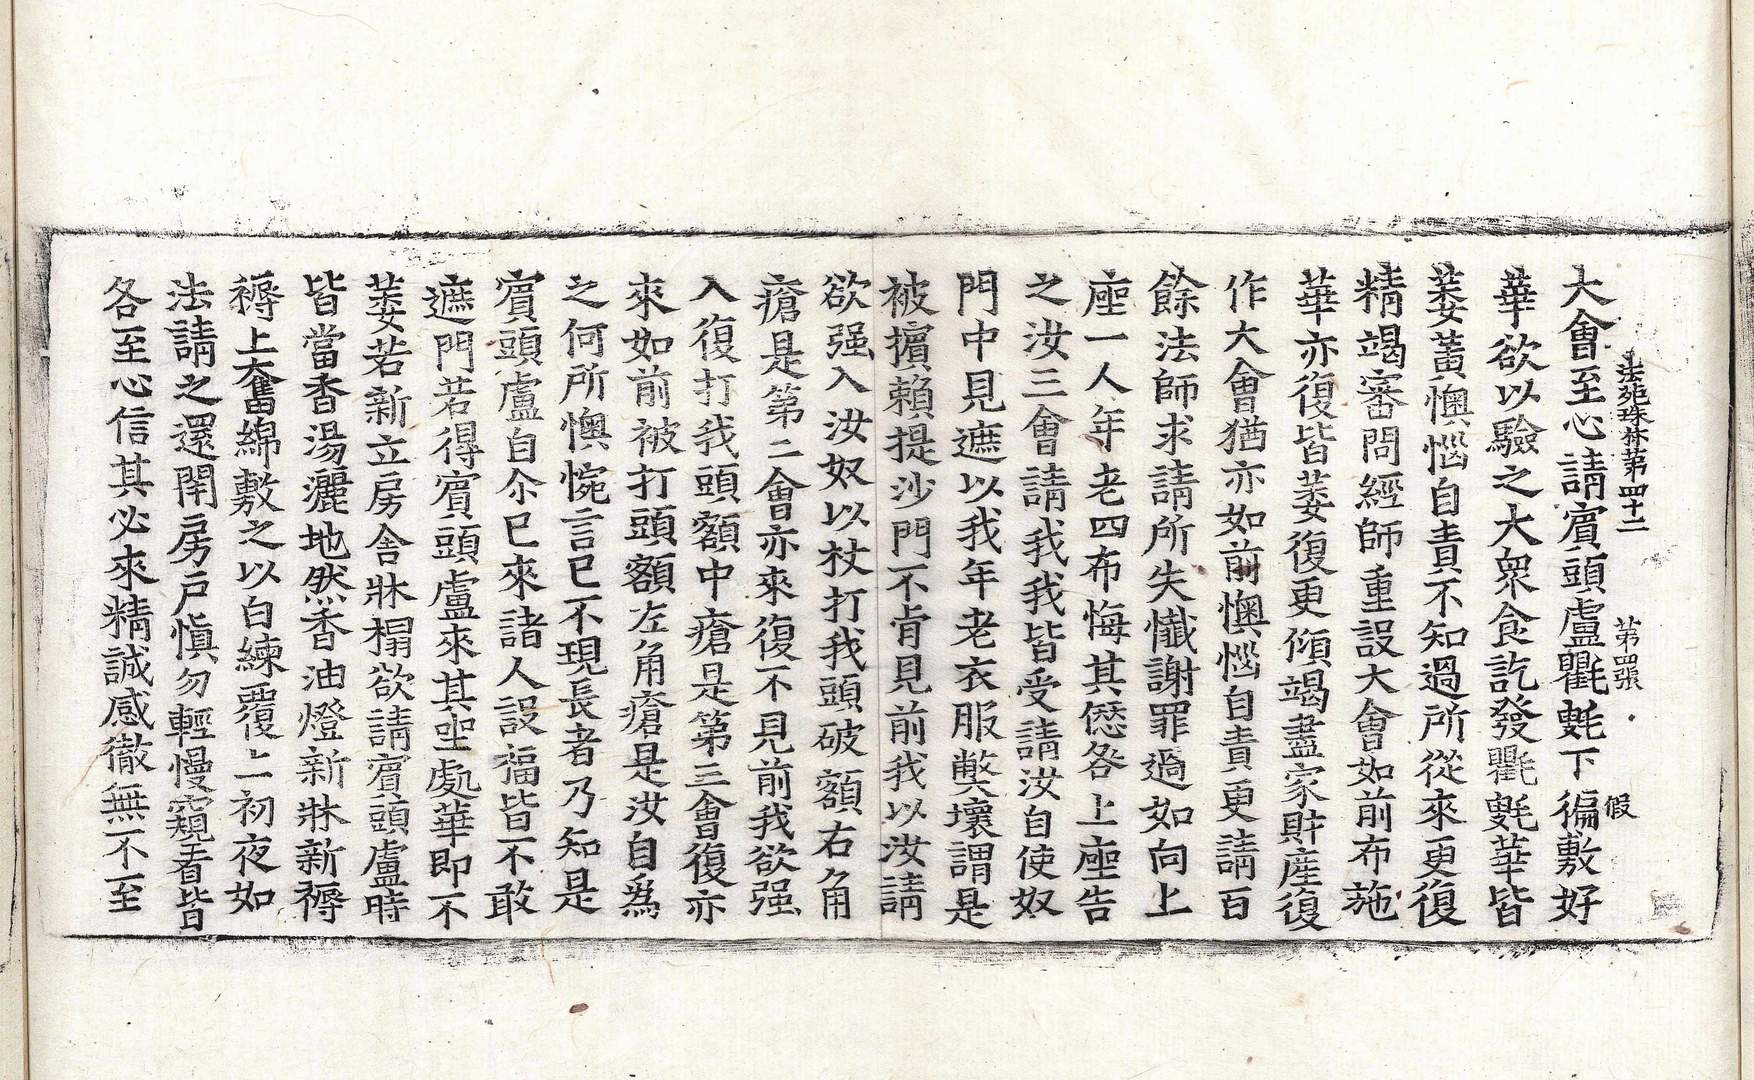 法苑珠林第四十二　第四張　假
大會至心請賓頭盧氍㲣下徧敷好
華欲以驗之大衆食訖發氍㲣華皆
萎蔫懊惱自責不知過所從來更復
精竭審問經師重設大會如前布施
華亦復皆萎復更傾竭盡家財產復
作大會猶亦如前懊惱自責更請百
餘法師求請所失懺謝罪過如向上
座一人年老四布悔其愆咎上座告
之汝三會請我我皆受請汝自使奴
門中見遮以我年老衣服弊壞謂是
被擯賴提沙門不肯見前我以汝請
欲强入汝奴以杖打我頭破額右角
瘡是第二會亦來復不見前我欲强
入復打我頭額中瘡是第三會復亦
來如前被打頭額左角瘡是汝自爲
之何所懊惋言已不現長者乃知是
賓頭盧自尒已來諸人設福皆不敢
遮門若得賓頭盧來其坐處華即不
萎若新立房舍牀榻欲請賓頭盧時
皆當香湯灑地然香油燈新牀新褥
褥上奮綿敷之以白練覆上初夜如
法請之還閇房戶愼勿輕慢窺看皆
各至心信其必來精誠感徹無不至